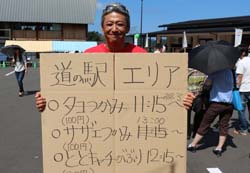 道の駅 エリア
○タコつかみ 11:15~
(100円) 13:00
○サザエつかみ 11:15~
(100円)
○ととキャッチ のぶり 12:15~
(100円)